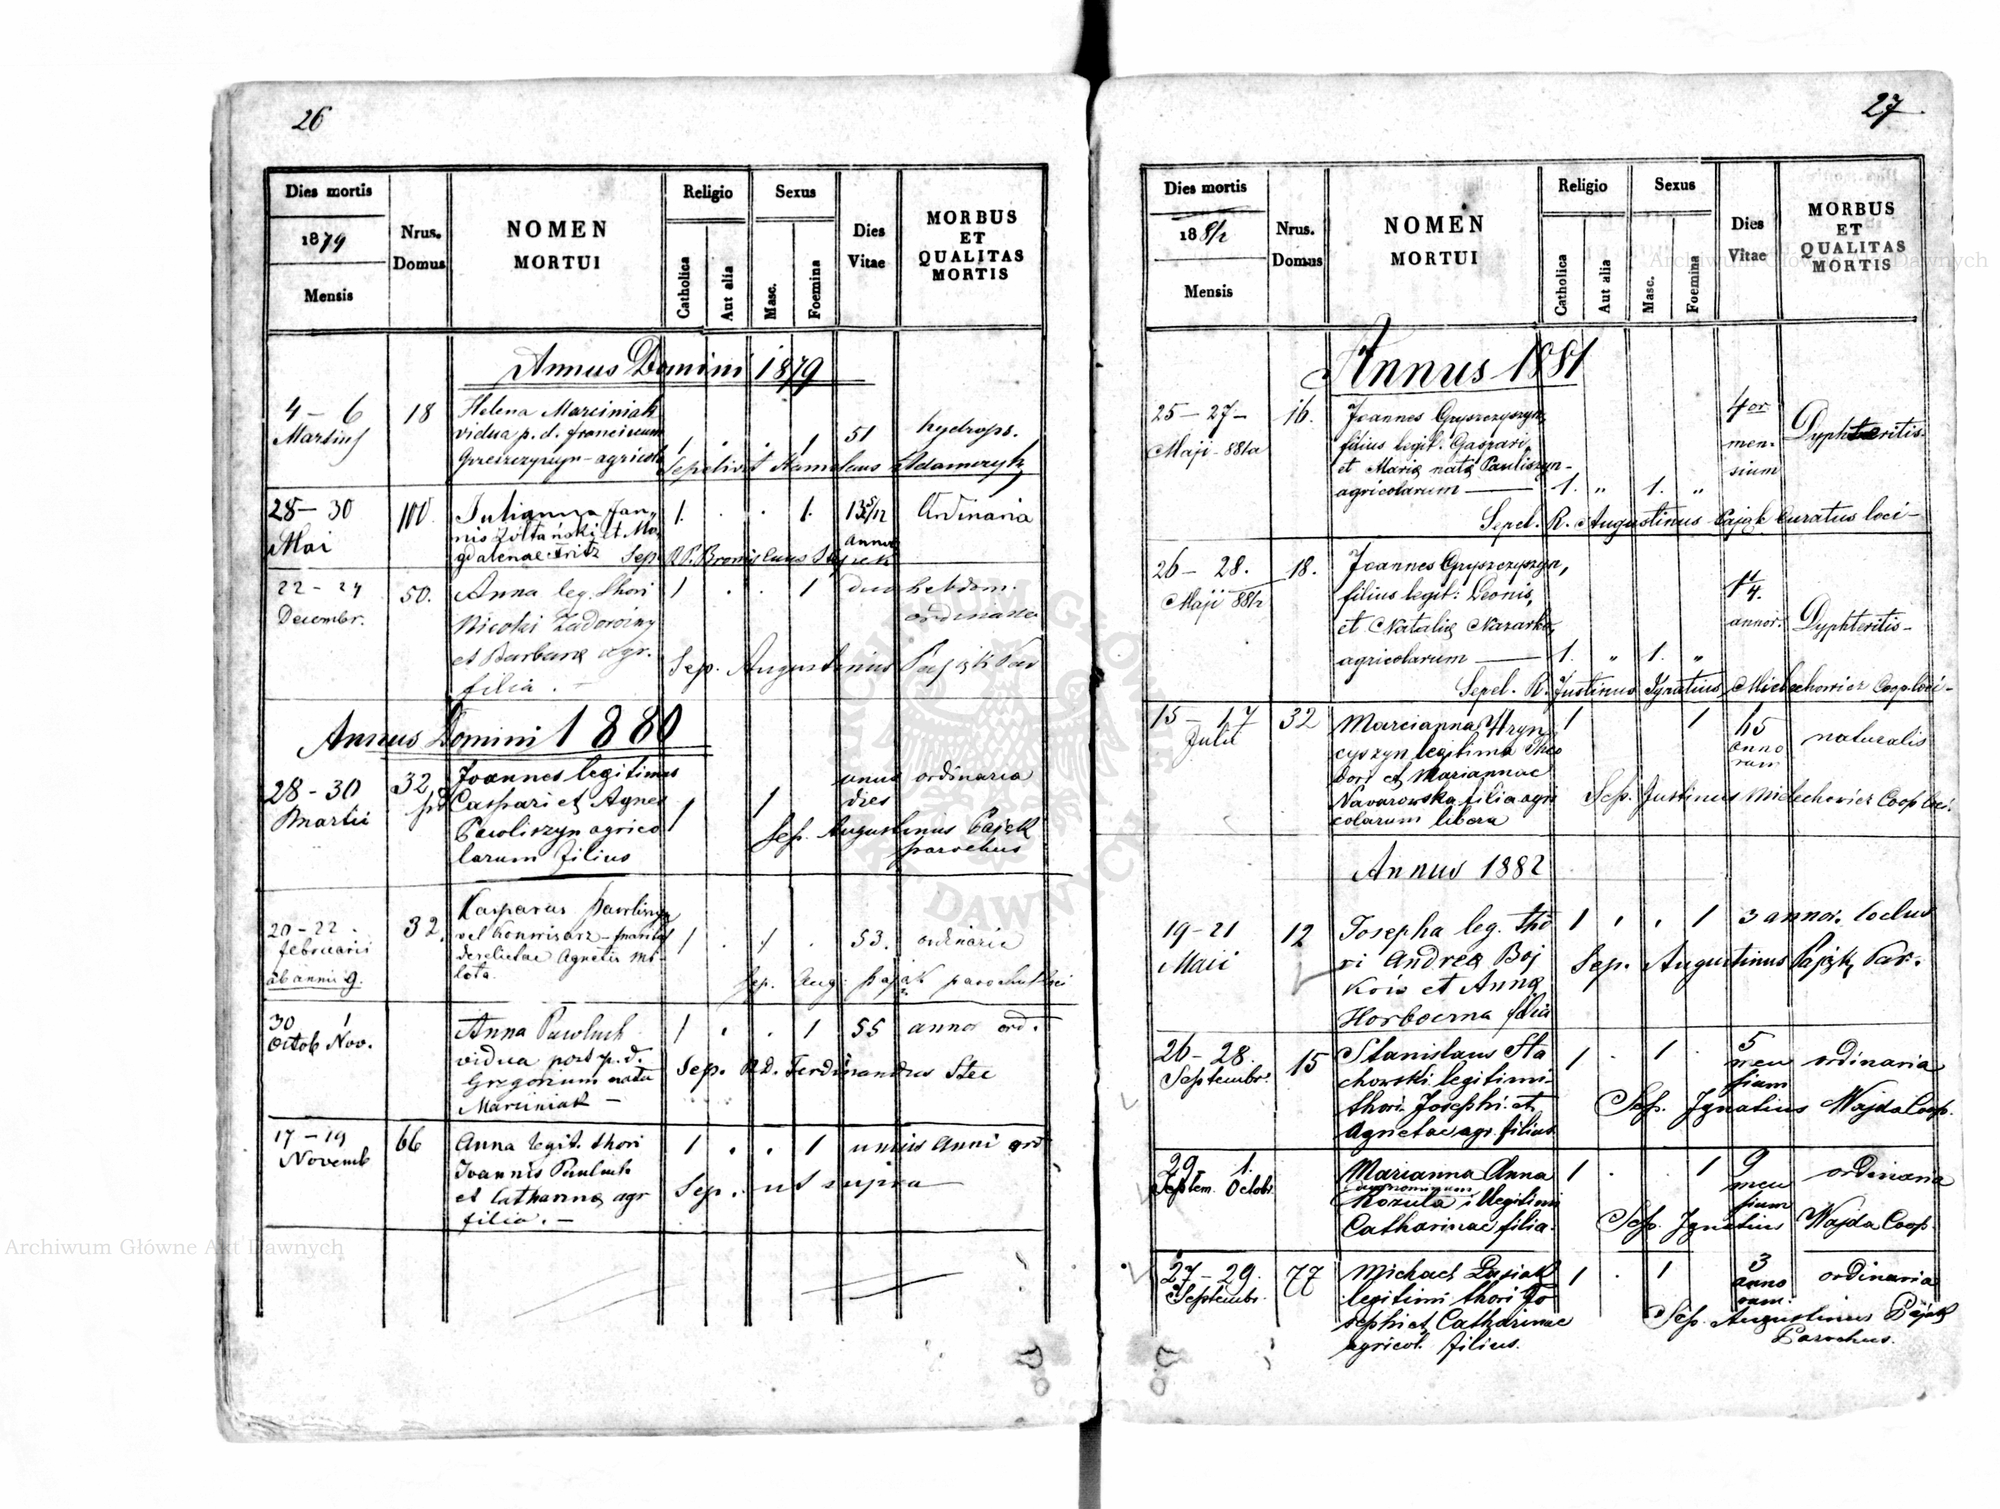 26
Dies mortis
1879
Mensis
Nrus. Domus
NOMEN MORTUI
Religio
Catholica
Aut alia
Sexus
Masc.
Foemina
Dies Vitae
MORBUS ET QUALITAS MORTIS
Annus Domini 1879
4 – 6 18 Helena Marciniak
Martius vidua p. d. franciscum 1 . . 1 51 hydrops.
agricola Sepelivit Adamczyk
28 – 30 100 Julianna Jan„ 1. . . 1. 13 5/12 Ordinaria
Mai nis Żółtański et Ma annor
gdalenae Fritz Sep. R. P. Bronislaus
22 – 24 50. Anna leg. thori 1 . . 1 duo hebdom.
Decembr. Nicolai Zadorożny ordinaria
et Barbara agr. Sep. Augustinus
filia. –
Annus Domini 1880
28 – 30 32 Joannes legitimus unus ordinaria
Martii Caspari et Agnes 1 1 dies
Pawliszyn agrico Sep. Augustinus Pająk
larum filius parochus
20 – 22. 32. Kasparus Pawliszyn
februarii vel Komisarz – maritus 1 . 1 . 53. ordinaria
derelictae Agnetis Mi
lota. Sep. Aug: Pająk parochus loci
30 1 Anna Pawluch 1 . . 1 55 annor ord.
Octob Nov. vidua post p. d. Sep. R. D. Ferdinandus Stec
Gregorium nata
Marciniak –
17 – 19 66 Anna legit. thori 1 . . 1 unius anni ord
Novemb Joannis Pawluch Sep. ut supra
et Catharina agr
filia. –
27
Dies mortis
188½
Mensis
Nrus. Domus
NOMEN MORTUI
Religio
Catholica
Aut alia
Sexus
Masc.
Foemina
Dies Vitae
MORBUS ET QUALITAS MORTIS
Annus 1881
25 – 27 – 16. Joannes Gryszczyszyn, 4or Dyphteritis.
Maji filius legit. Gaspari, men.
et Maria nata Pauliszyn – sium
agricolarum —— 1. „ 1. „
Sepel. R. Augustinus Pająk Curatus loci –
26 – 28. 18. Joannes Gryszczyszyn,
Maji filius legit: Leonis, annor. Dyphteritis –
et Natalia Nazarko,
agricolarum —— 1. „ 1. „
Sepel. R. Justinus Ignatius Mielechowicz Coop. loci –
15 – 17 32 Marcianna Hryn 1 1 naturalis
Julii cyszyn legitima Theo anno
dori et Mariannae rum
Navarowska filia agri Sep. Justinus Mielechowicz Coop loci.
colarum libera
Annus 1882
19 – 21 12 Josepha leg. tho 1 . . 1 3 annor.
Maii ri Andrea Boj Sep. Augustinus Pająk, Par.
kow et Anna
filia
26 – 28. 15 Stanislaus Sta 1 . 1 . 5 ordinaria
Septembr. chowski legitimi men
thori Josephi et sium
Agnetae agr. filius. Sep. Ignatius Wajda Coop.
29 1. Marianna Anna 1 . . 1 9 ordinaria
Septem. Octobr. Kozula illegitimi men
Catharinae filia. sium
Sep. Ignatius Wajda Coop.
27 – 29. 77 Michael 1 . 1 3 ordinaria
Septembr. legitimi thori Jo anno
sephi et Catharinae rum.
agricol. filius. Sep. Augustinus Pająk
Parochus.
Archiwum Główne Akt Dawnych
Archiwum Główne Akt Dawnych
ARCHIWUM GŁÓWNE AKT DAWNYCH